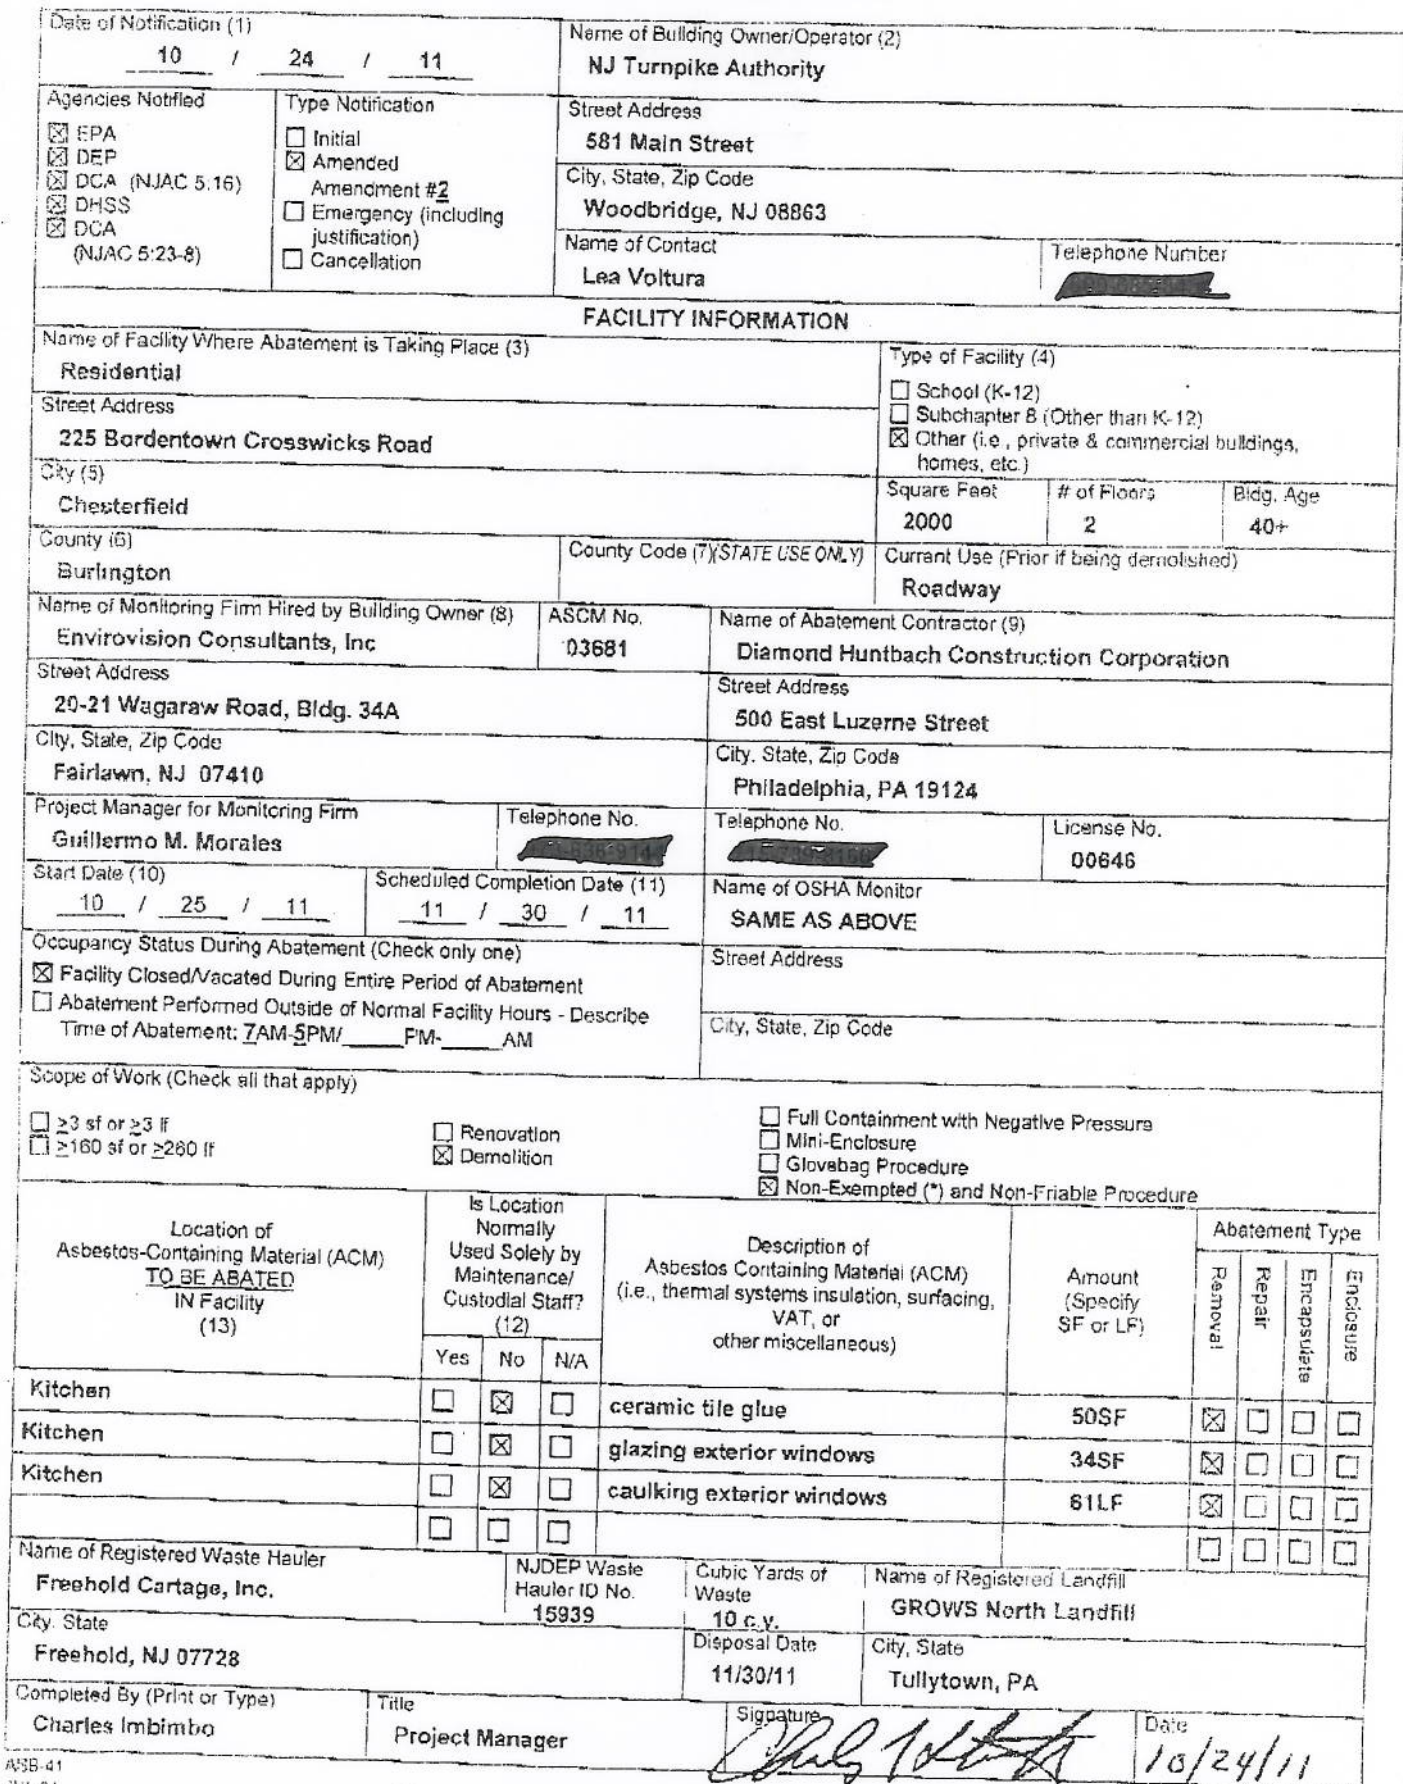 Date of Notification (1)
10 / 24 / 11
Name of Building Owner/Operator (2)
NJ Turnpike Authority
Agencies Notified
☒ EPA
☒ DEP
☒ DCA (NJAC 5:16)
☒ DHSS
☒ DCA
(NJAC 5:23-8)
Type Notification
☐ Initial
☒ Amended
Amendment #2
☐ Emergency (including
justification)
☐ Cancellation
Street Address
581 Main Street
City, State, Zip Code
Woodbridge, NJ 08863
Name of Contact
Lea Voltura
Telephone Number
FACILITY INFORMATION
Name of Facility Where Abatement is Taking Place (3)
Residential
Street Address
225 Bordentown Crosswicks Road
City (5)
Chesterfield
Type of Facility (4)
☐ School (K-12)
☐ Subchapter 8 (Other than K-12)
☒ Other (i.e., private & commercial buildings,
homes, etc.)
Square Feet
2000
# of Floors
2
Bldg. Age
40+
County (6)
Burlington
County Code (7)(STATE USE ONLY)
Current Use (Prior if being demolished)
Roadway
Name of Monitoring Firm Hired by Building Owner (8)
Envirovision Consultants, Inc
ASCM No.
03681
Name of Abatement Contractor (9)
Diamond Huntbach Construction Corporation
Street Address
20-21 Wagaraw Road, Bldg. 34A
Street Address
500 East Luzerne Street
City, State, Zip Code
Fairlawn, NJ 07410
City, State, Zip Code
Philadelphia, PA 19124
Project Manager for Monitoring Firm
Guillermo M. Morales
Telephone No.
Telephone No.
License No.
00646
Start Date (10)
10 / 25 / 11
Scheduled Completion Date (11)
11 / 30 / 11
Name of OSHA Monitor
SAME AS ABOVE
Occupancy Status During Abatement (Check only one)
☒ Facility Closed/Vacated During Entire Period of Abatement
☐ Abatement Performed Outside of Normal Facility Hours - Describe
Time of Abatement: 7AM-5PM/_____PM-_____AM
Street Address
City, State, Zip Code
Scope of Work (Check all that apply)
☐ ≥3 sf or ≥3 lf
☐ ≥160 sf or ≥260 lf
☐ Renovation
☒ Demolition
☐ Full Containment with Negative Pressure
☐ Mini-Enclosure
☐ Glovebag Procedure
☒ Non-Exempted (*) and Non-Friable Procedure
Location of
Asbestos-Containing Material (ACM)
TO BE ABATED
IN Facility
(13)
Is Location
Normally
Used Solely by
Maintenance/
Custodial Staff?
(12)
Yes No N/A
Description of
Asbestos Containing Material (ACM)
(i.e., thermal systems insulation, surfacing,
VAT, or
other miscellaneous)
Amount
(Specify
SF or LF)
Abatement Type
Removal
Repair
Encapsulate
Enclosure
Kitchen ☐ ☒ ☐ ceramic tile glue 50SF ☒ ☐ ☐ ☐
Kitchen ☐ ☒ ☐ glazing exterior windows 34SF ☒ ☐ ☐ ☐
Kitchen ☐ ☒ ☐ caulking exterior windows 61LF ☒ ☐ ☐ ☐
☐ ☐ ☐ ☐ ☐ ☐ ☐
Name of Registered Waste Hauler
Freehold Cartage, Inc.
NJDEP Waste
Hauler ID No.
15939
Cubic Yards of
Waste
10 c.y.
Name of Registered Landfill
GROWS North Landfill
City, State
Freehold, NJ 07728
Disposal Date
11/30/11
City, State
Tullytown, PA
Completed By (Print or Type)
Charles Imbimbo
Title
Project Manager
Signature
Date
10/24/11
ASB-41